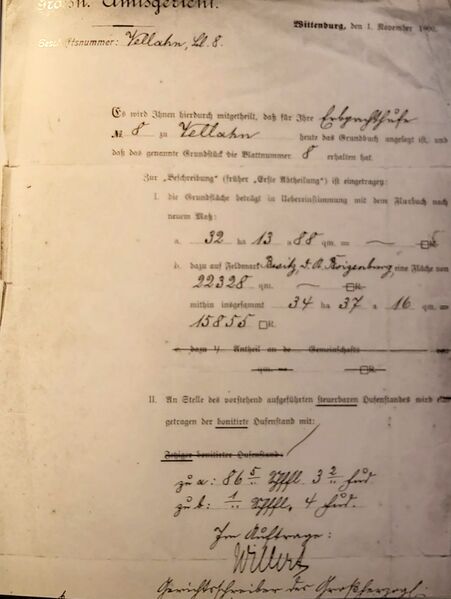 Großh. Amtsgericht.
Wittenburg, den 1. November 1900.
Geschäftsnummer: Vellahn, Bl. 8.
Es wird Ihnen hierdurch mitgetheilt, daß für Ihre Erbpachthufe
№ 8 zu Vellahn heute das Grundbuch angelegt ist, und
daß das genannte Grundstück die Blattnummer 8 erhalten hat.
Zur „Beschreibung“ (früher „Erste Abtheilung“) ist eingetragen:
I. die Grundfläche beträgt in Uebereinstimmung mit dem Flurbuch nach
neuem Maß:
a. 32 ha 13 a 88 qm. = — □R.
b. dazu auf Feldmark Besitz, D. A. Boizenburg, eine Fläche von
22328 qm. — □R.
mithin insgesammt 34 ha 37 a 16 qm. =
15855 □R.
c. dazu 4 Antheil an de Gemeinschafts
qm. = □R.
II. An Stelle des vorstehend aufgeführten steuerbaren Hufenstandes wird ein
getragen der bonitirte Hufenstand mit:
Jetziger bonitirter Hufenstand:
zu a: 86 5 Schffl 3 2
zu b: 1 Schffl. 4
Im Auftrage:
Willert
Gerichtsschreiber des Großherzogl.